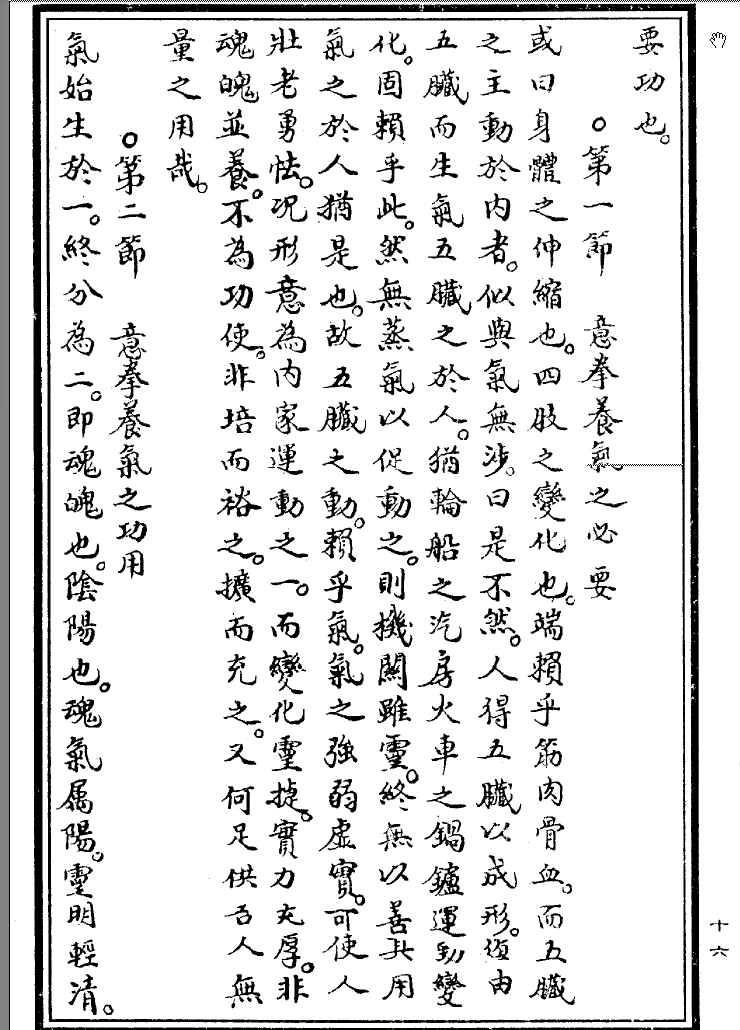 要功也。
〇第一節　意拳養氣之必要
或曰身體之伸縮也。四肢之變化也。端賴乎筋肉骨血。而五臟
之主動於內者。似與氣無涉。曰是不然。人得五臟以成形。須由
五臟而生氣五臟之於人。猶輪船之汽房火車之鍋鑪運動變
化。固賴乎此。然無蒸氣以促動之。則機關雖靈。終無以善其用
氣之於人猶是也。故五臟之動。賴乎氣。氣之強弱虛實。可使人
壯老勇怯。況形意為內家運動之一。而變化靈捷。實力充厚。非
魂魄並養。不為功使。非培而裕之。擴而充之。又何足供吾人無
量之用哉。
〇第二節　意拳養氣之功用
氣始生於一。終分為二。即魂魄也。陰陽也。魂氣屬陽。靈明輕清。
十六